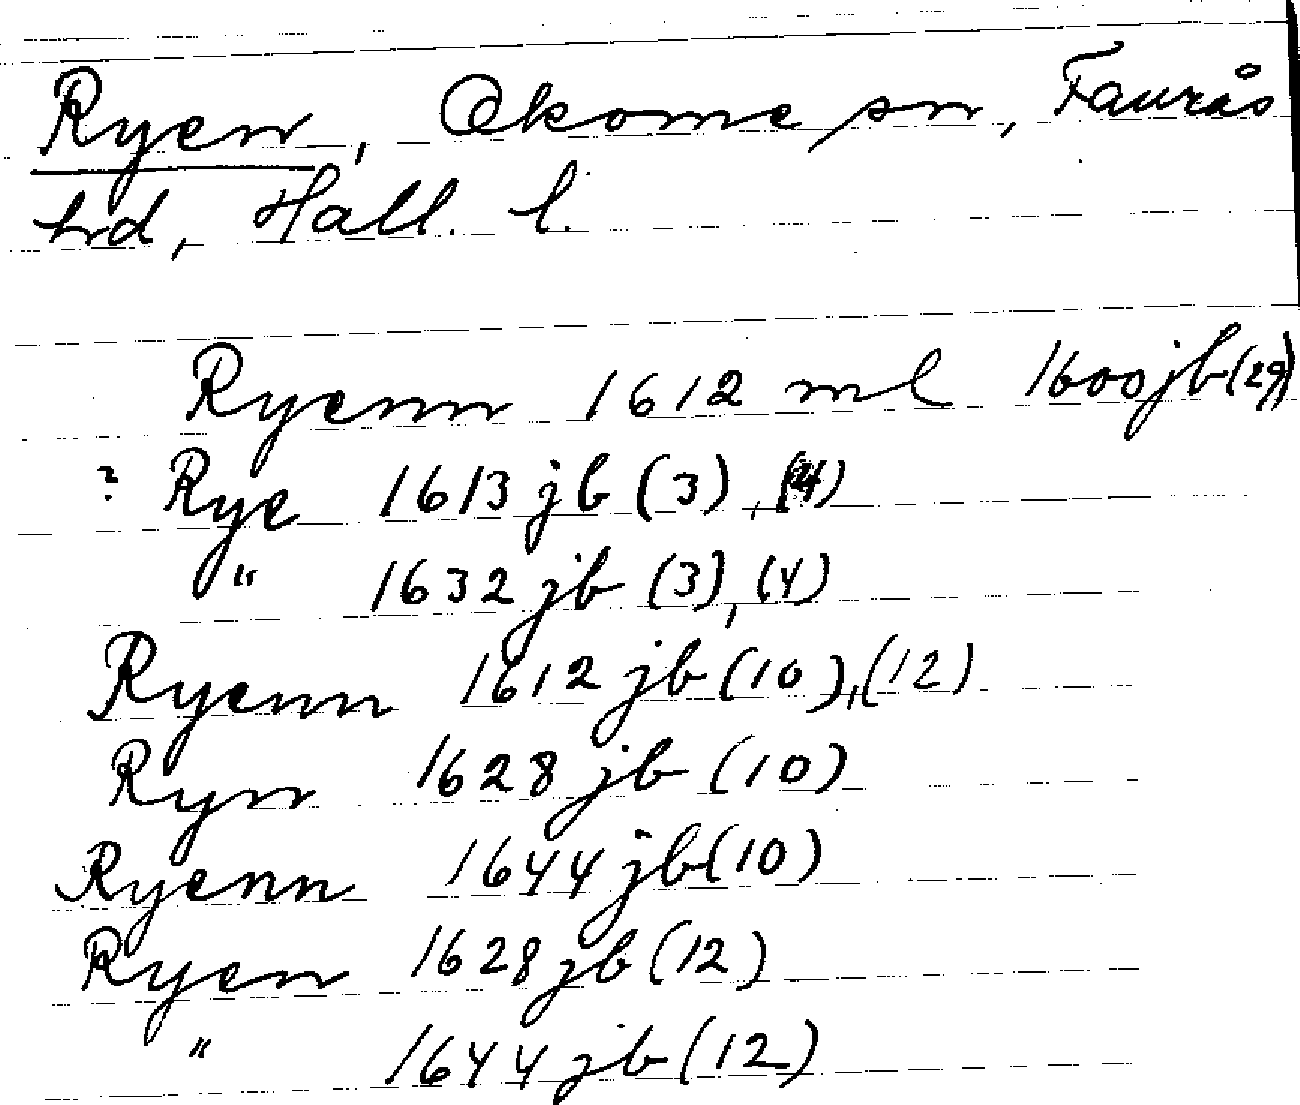 Ryen, Okome sn, Faurås
hrd, Hall. l.
Ryenn 1612 ml 1600jb(29)
? Rye 1613 jb (3), (4)
" 1632 jb (3), (4)
Ryenn 1612 jb (10), (12)
Ryn 1628 jb (10)
Ryenn 1644 jb (10)
Ryen 1628 jb (12)
" 1644 jb (12)